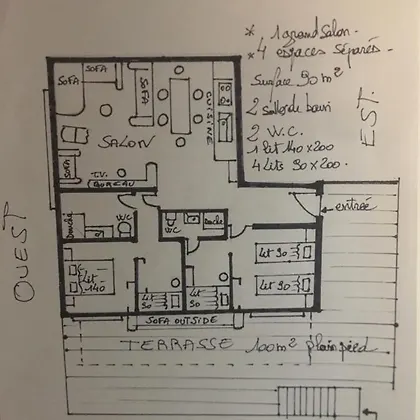 * 1 grand Salon.
* 4 espaces séparés.
Surface 90 m²
2 salles de bain
2 W.C.
1 lit 140 x 200
4 Lits 90 x 200.
EST.
OUEST
SOFA
SOFA
SOFA
SOFA
CUISINE
SALON
T.V.
BUREAU
Douche
WC
WC
Douche
entrée
Lit
140
Lit
90
Lit
90
Lit 90
Lit 90
SOFA OUTSIDE
TERRASSE 100m² plain pied